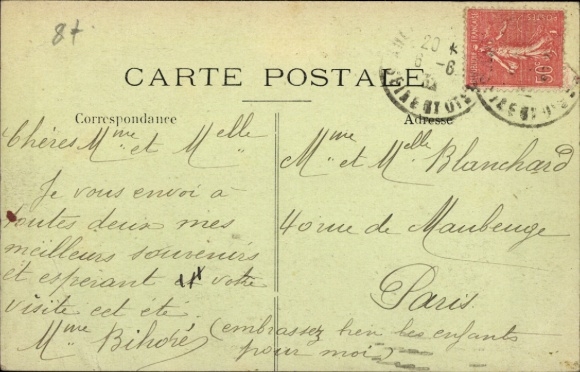 87
CARTE POSTALE
Correspondance
Adresse
Chères Mme et Melle
Je vous envoi à
toutes deux mes
meilleurs souvenirs
et espérant votre
visite cet été.
Mme Bihoré
(embrassez bien les enfants
pour moi)
Mme et Melle Blanchard
40 rue de Maubeuge
Paris.
50c